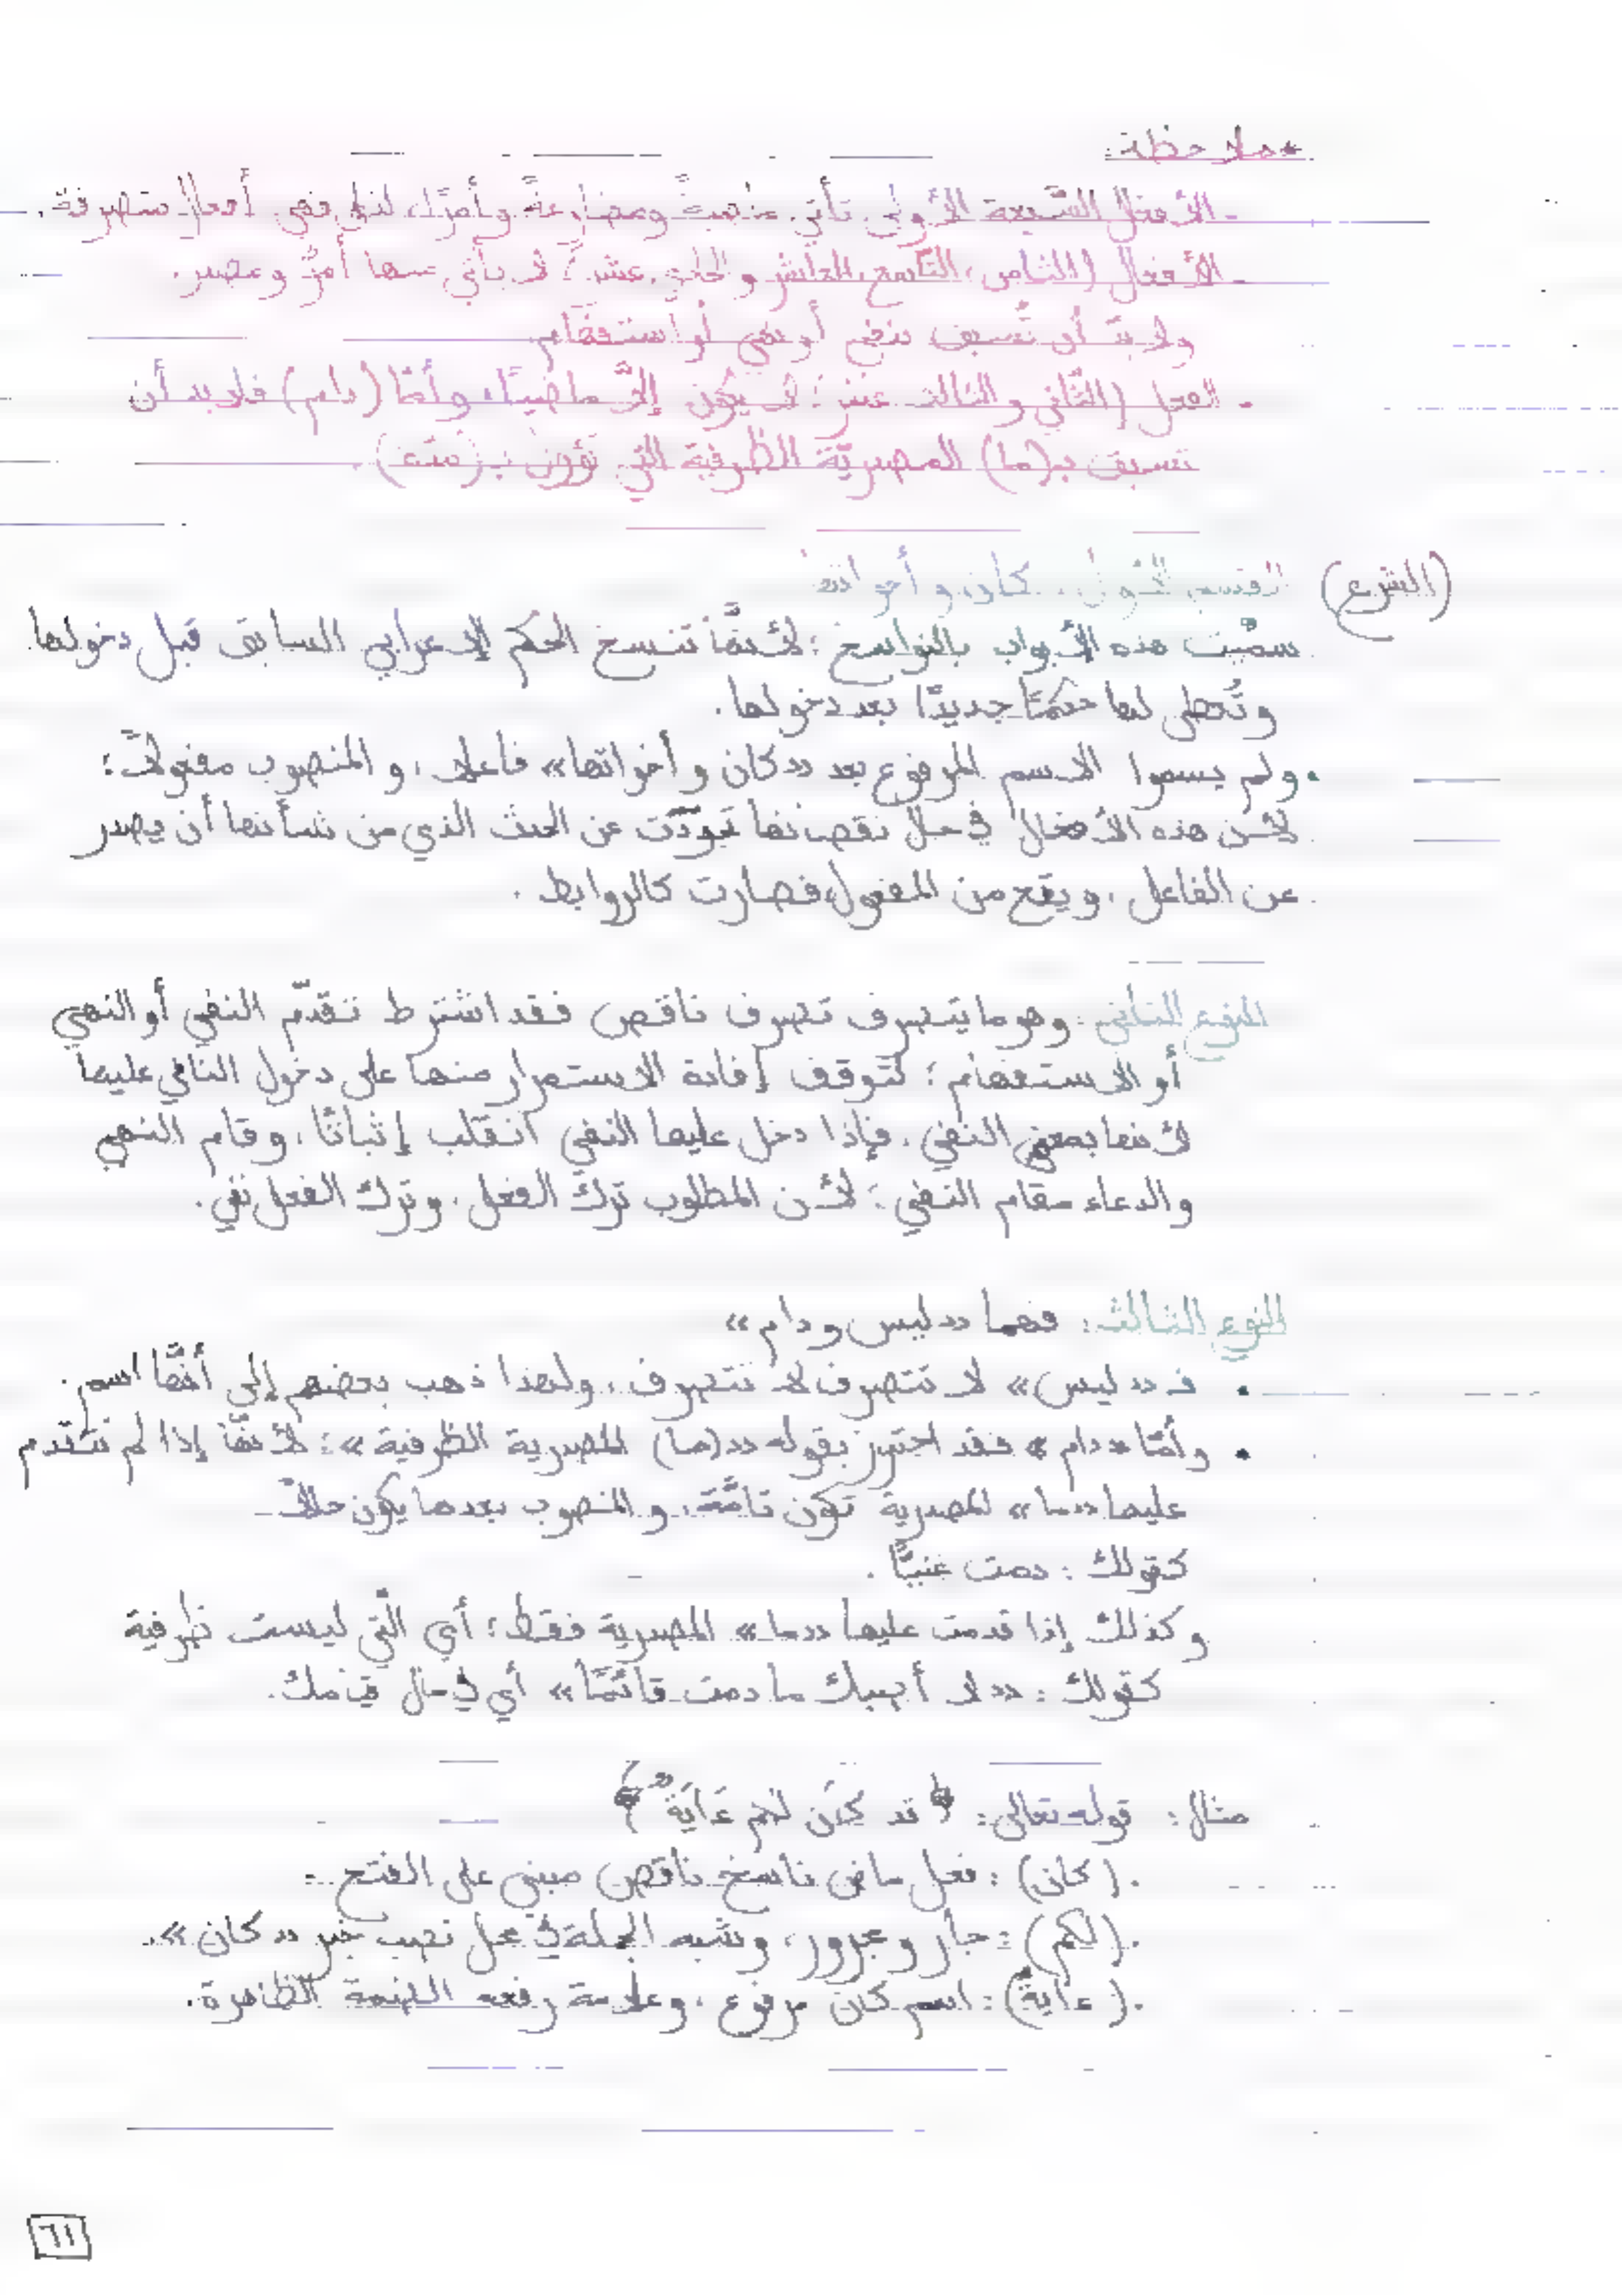 * ملاحظة:
- الأفعال السَّبعة الأولى تأتي ماضيةً ومضارعةً وأمرًا، لذا فهي أفعال متصرفة.
- الأفعال (الثامن، التَّاسع، العاشر والحادي عشر): لا يأتي منها أمرٌ ومصدر.
ولا بدَّ أن تُسبق بنفي أو نهي أو استفهام.
- الفعل (الثَّاني والثالث عشر): لا يكون إلَّا ماضيًا، وأمَّا (دام) فلا بد أن
تسبق بـ(ما) المصدريَّة الظَّرفية التي تؤول بـ(مدّة).
(الشرح) القسم الأول: كان وأخواتها
سمِّيت هذه الأبواب بالنواسخ؛ لأنَّها تنسخ الحكم الإعرابي السابق قبل دخولها
وتُعطي لها حكمًا جديدًا بعد دخولها.
• ولم يسموا الاسم المرفوع بعد «كان وأخواتها» فاعلا، والمنصوب مفعولًا؛
لأن هذه الأفعال في حال نقصانها تجرَّدت عن الحدث الذي من شأنها أن يصدر
عن الفاعل، ويقع من المفعول، فصارت كالروابط.
النوع الثاني: وهو ما يتصرف تصرف ناقص فقد اشترط تقدّم النفي أو النهي
أو الاستفهام؛ لتوقف إفادة الاستمرار منها على دخول النافي عليها
لأنها بمعنى النفي، فإذا دخل عليها النفي انقلب إثباتًا، وقام النهي
والدعاء مقام النفي؛ لأن المطلوب ترك الفعل، وترك الفعل نفي.
النوع الثالث: فهما «ليس ودام»
• فـ «ليس» لا تتصرف لا تتصرف، ولهذا ذهب بعضهم إلى أنَّها اسم.
• وأمَّا «دام» فقد احترز بقوله «(ما) المصدرية الظرفية»؛ لأنَّها إذا لم تتقدم
عليها «ما» المصدرية تكون تامَّة، والمنصوب بعدها يكون حالًا
كقولك: دمت غنيًّا.
وكذلك إذا قدمت عليها «ما» المصدرية فقط؛ أي الَّتي ليست ظرفية
كقولك: «لا أصحبك ما دمت قائمًا» أي في حال قيامك.
مثال: قوله تعالى: ﴿قد كان لكم ءَايَةٌ﴾
• (كان): فعل ماض ناسخ ناقص مبني على الفتح.
• (لكم): جار ومجرور، وشبه الجملة في محل نصب خبر «كان».
• (ءاية): اسم كان مرفوع، وعلامة رفعه الضمة الظاهرة.
٦١